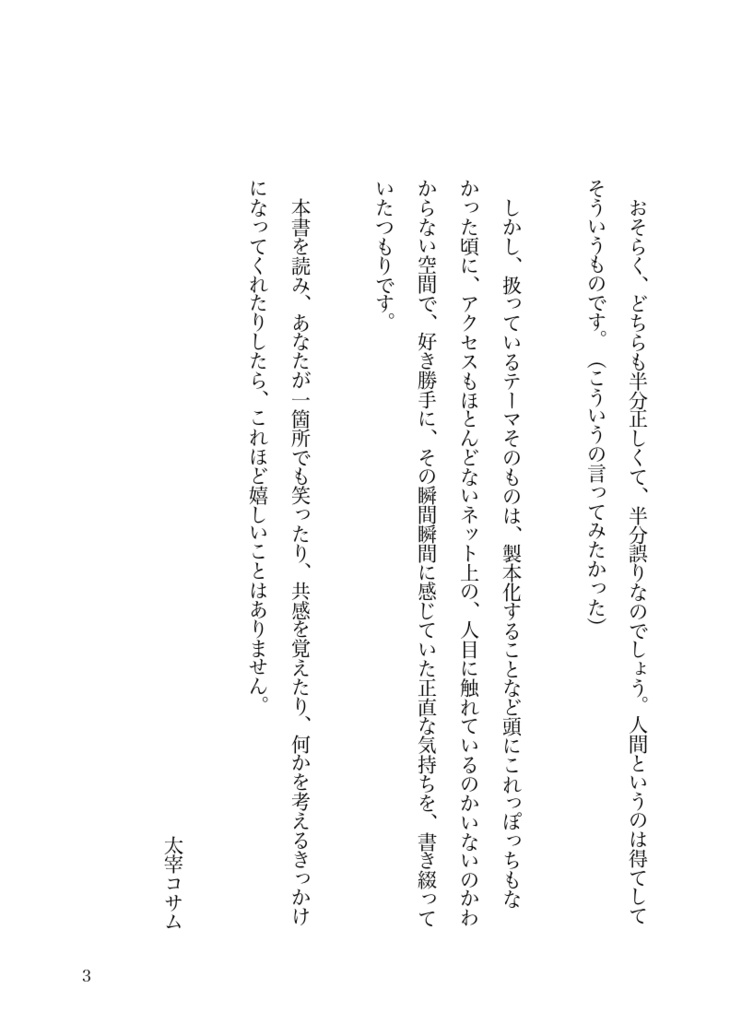 おそらく、どちらも半分正しくて、半分誤りなのでしょう。人間というのは得てして
そういうものです。（こういうの言ってみたかった）
　しかし、扱っているテーマそのものは、製本化することなど頭にこれっぽっちもな
かった頃に、アクセスもほとんどないネット上の、人目に触れているのかいないのかわ
からない空間で、好き勝手に、その瞬間瞬間に感じていた正直な気持ちを、書き綴って
いたつもりです。
　本書を読み、あなたが一箇所でも笑ったり、共感を覚えたり、何かを考えるきっかけ
になってくれたりしたら、これほど嬉しいことはありません。
太宰コサム
3